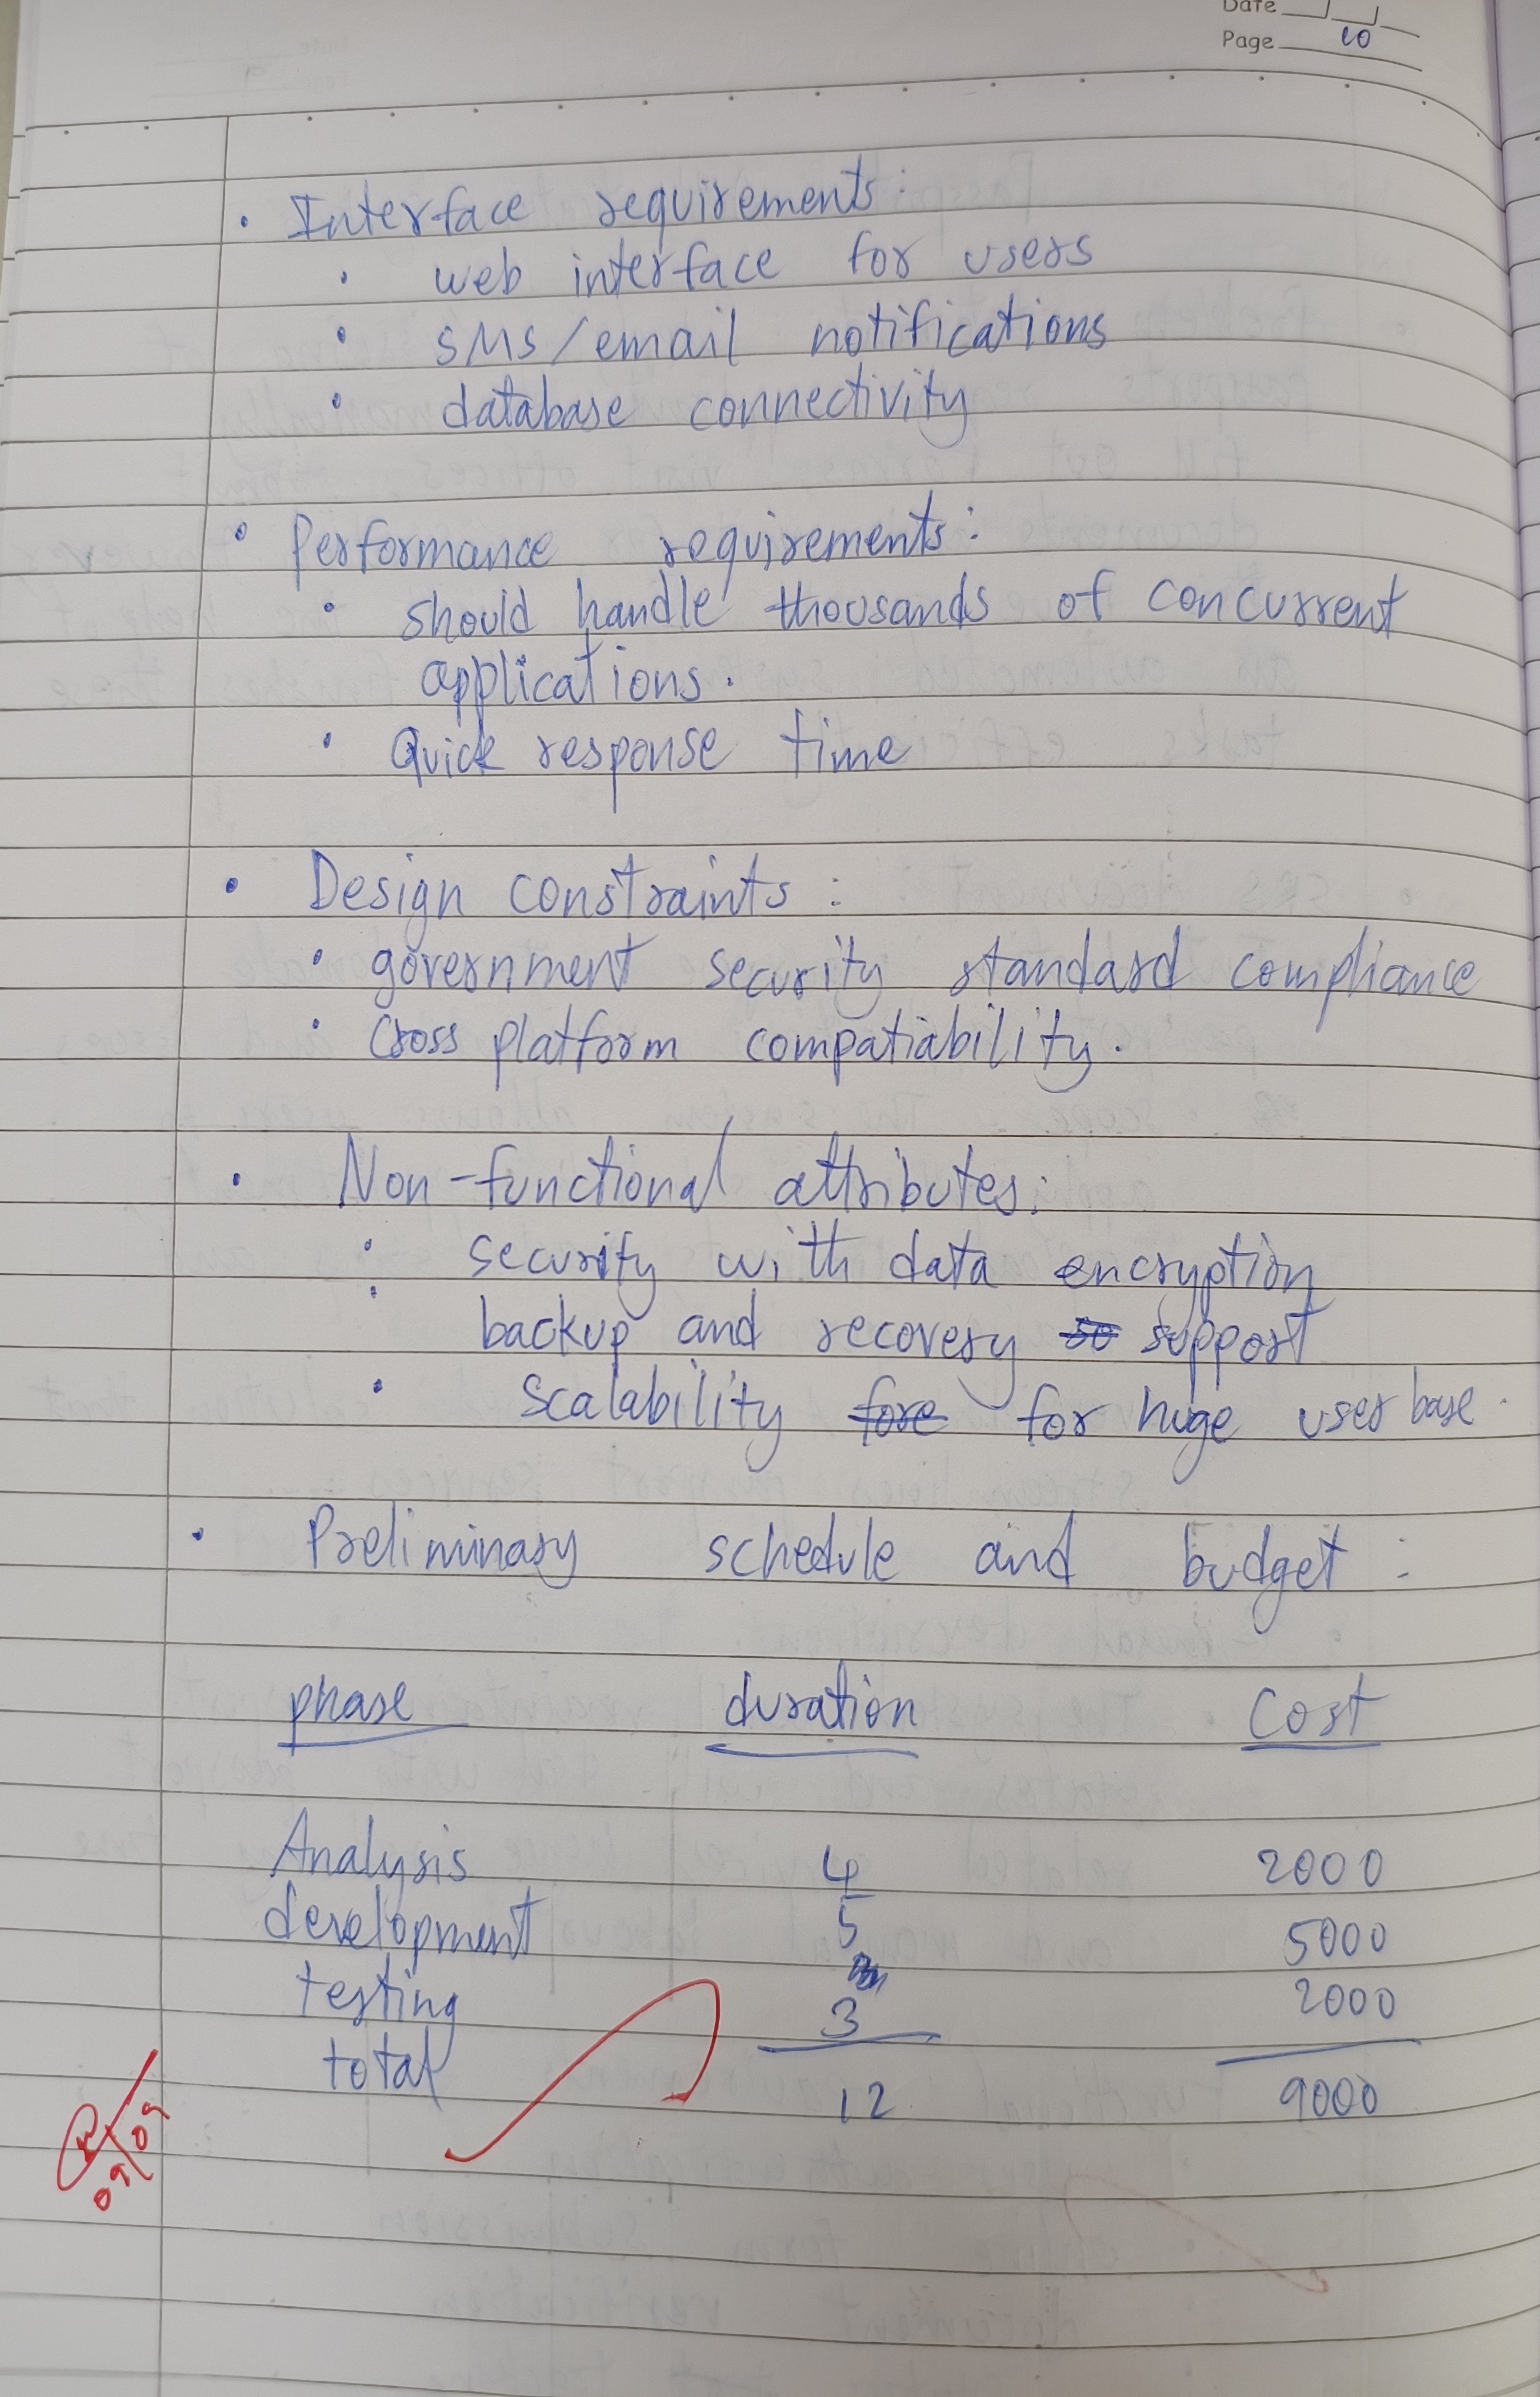 Date
Page 10
• Interface requirements:
• web interface for users
• SMS/email notifications
• database connectivity
• Performance requirements:
• should handle thousands of concurrent
applications.
• Quick response time
• Design constraints:
• government security standard compliance
• Cross platform compatiability.
• Non-functional attributes:
• security with data encryption
• backup and recovery so support
• scalability fore for huge user base.
• Preliminary schedule and budget:
phase duration Cost
Analysis 4 2000
development 5 5000
testing 3 2000
total 12 9000
09/09